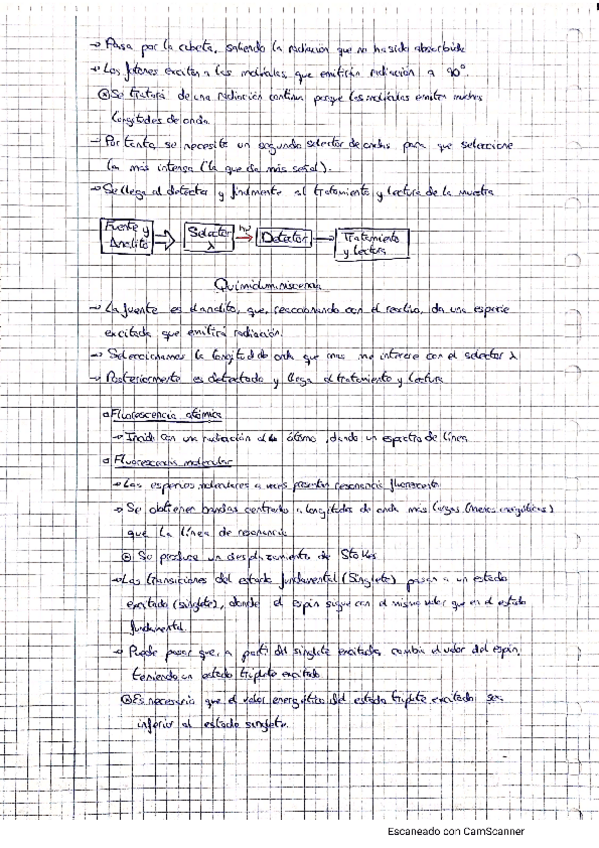 → Pasa por la cubeta, saliendo la radiación que no ha sido absorbida
→ Los fotones excitan a las moléculas, que emitirán radiación a 90°.
⊗ Se tratará de una radiación continua porque las moléculas emiten muchas
longitudes de onda
→ Por tanto, se necesita un segundo selector de ondas para que seleccione
la más intensa (la que da más señal).
→ Se llega al detector y finalmente al tratamiento y lectura de la muestra
Fuente y Analito ⇒ Selector λ hν → Detector → Tratamiento y lectura
Quimioluminiscencia
→ La fuente es el analito, que, reaccionando con el reactivo, da una especie
excitada que emitirá radiación.
→ Seleccionamos la longitud de onda que mas me interese con el selector λ
→ Posteriormente es detectado y llega al tratamiento y lectura
Fluorescencia atómica
→ Incido con una radiación al átomo, dando un espectro de línea
Fluorescencia molecular
→ Las especies moleculares a veces presentan resonancia fluorescente
→ Se obtienen bandas centradas a longitudes de onda más largas (menos energéticas)
que la línea de resonancia
⊗ Se produce un desplazamiento de Stokes
→ Las transiciones del estado fundamental (Singlete) pasan a un estado
excitado (singlete), donde el espín sigue con el mismo valor que en el estado
fundamental
→ Puede pasar que, a partir del singlete excitado, cambia el valor del espín,
teniendo un estado triplete excitado
⊗ Es necesario que el valor energético del estado triplete excitado sea
inferior al estado singlete.
Escaneado con CamScanner